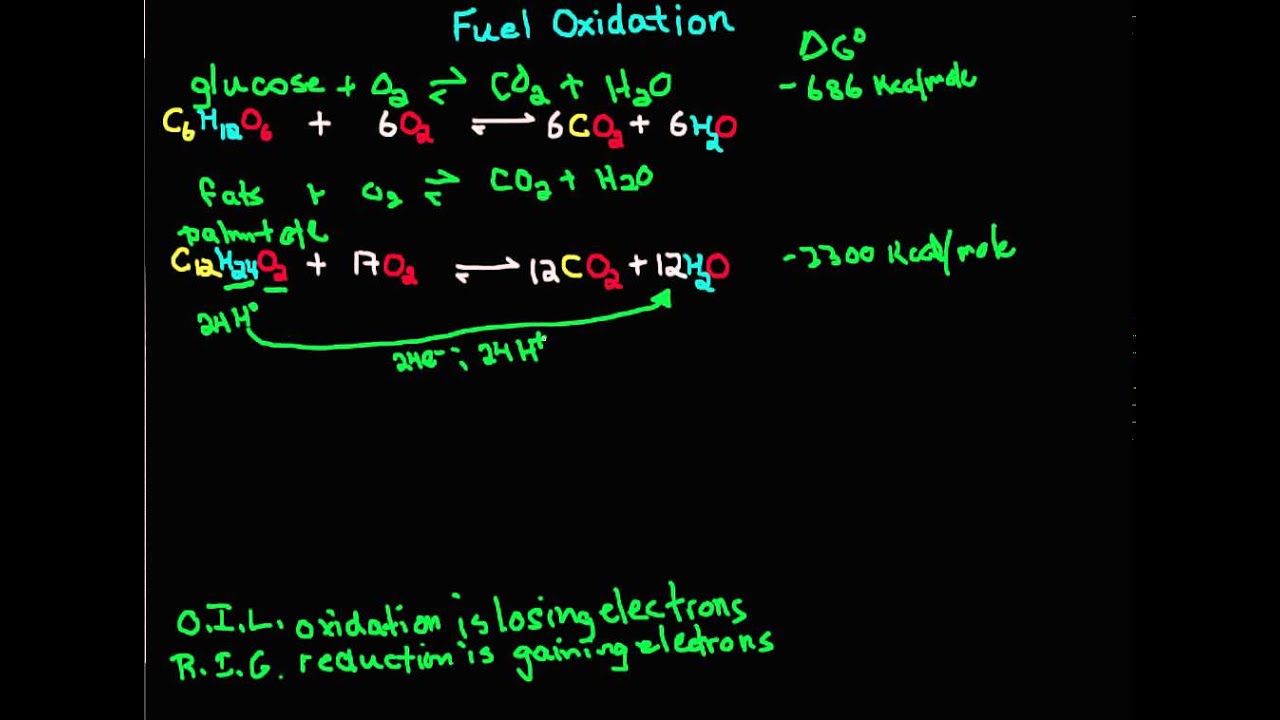 Fuel Oxidation
ΔG°
glucose + O₂ ⇌ CO₂ + H₂O -686 Kcal/mole
C₆H₁₂O₆ + 6O₂ ⇌ 6CO₂ + 6H₂O
fats + O₂ ⇌ CO₂ + H₂O
C₁₂H₂₄O₂ + 17O₂ ⇌ 12CO₂ + 12H₂O -3300 Kcal/mole
24H°
24e⁻; 24H⁺
O.I.L. oxidation is losing electrons
R.I.G. reduction is gaining electrons